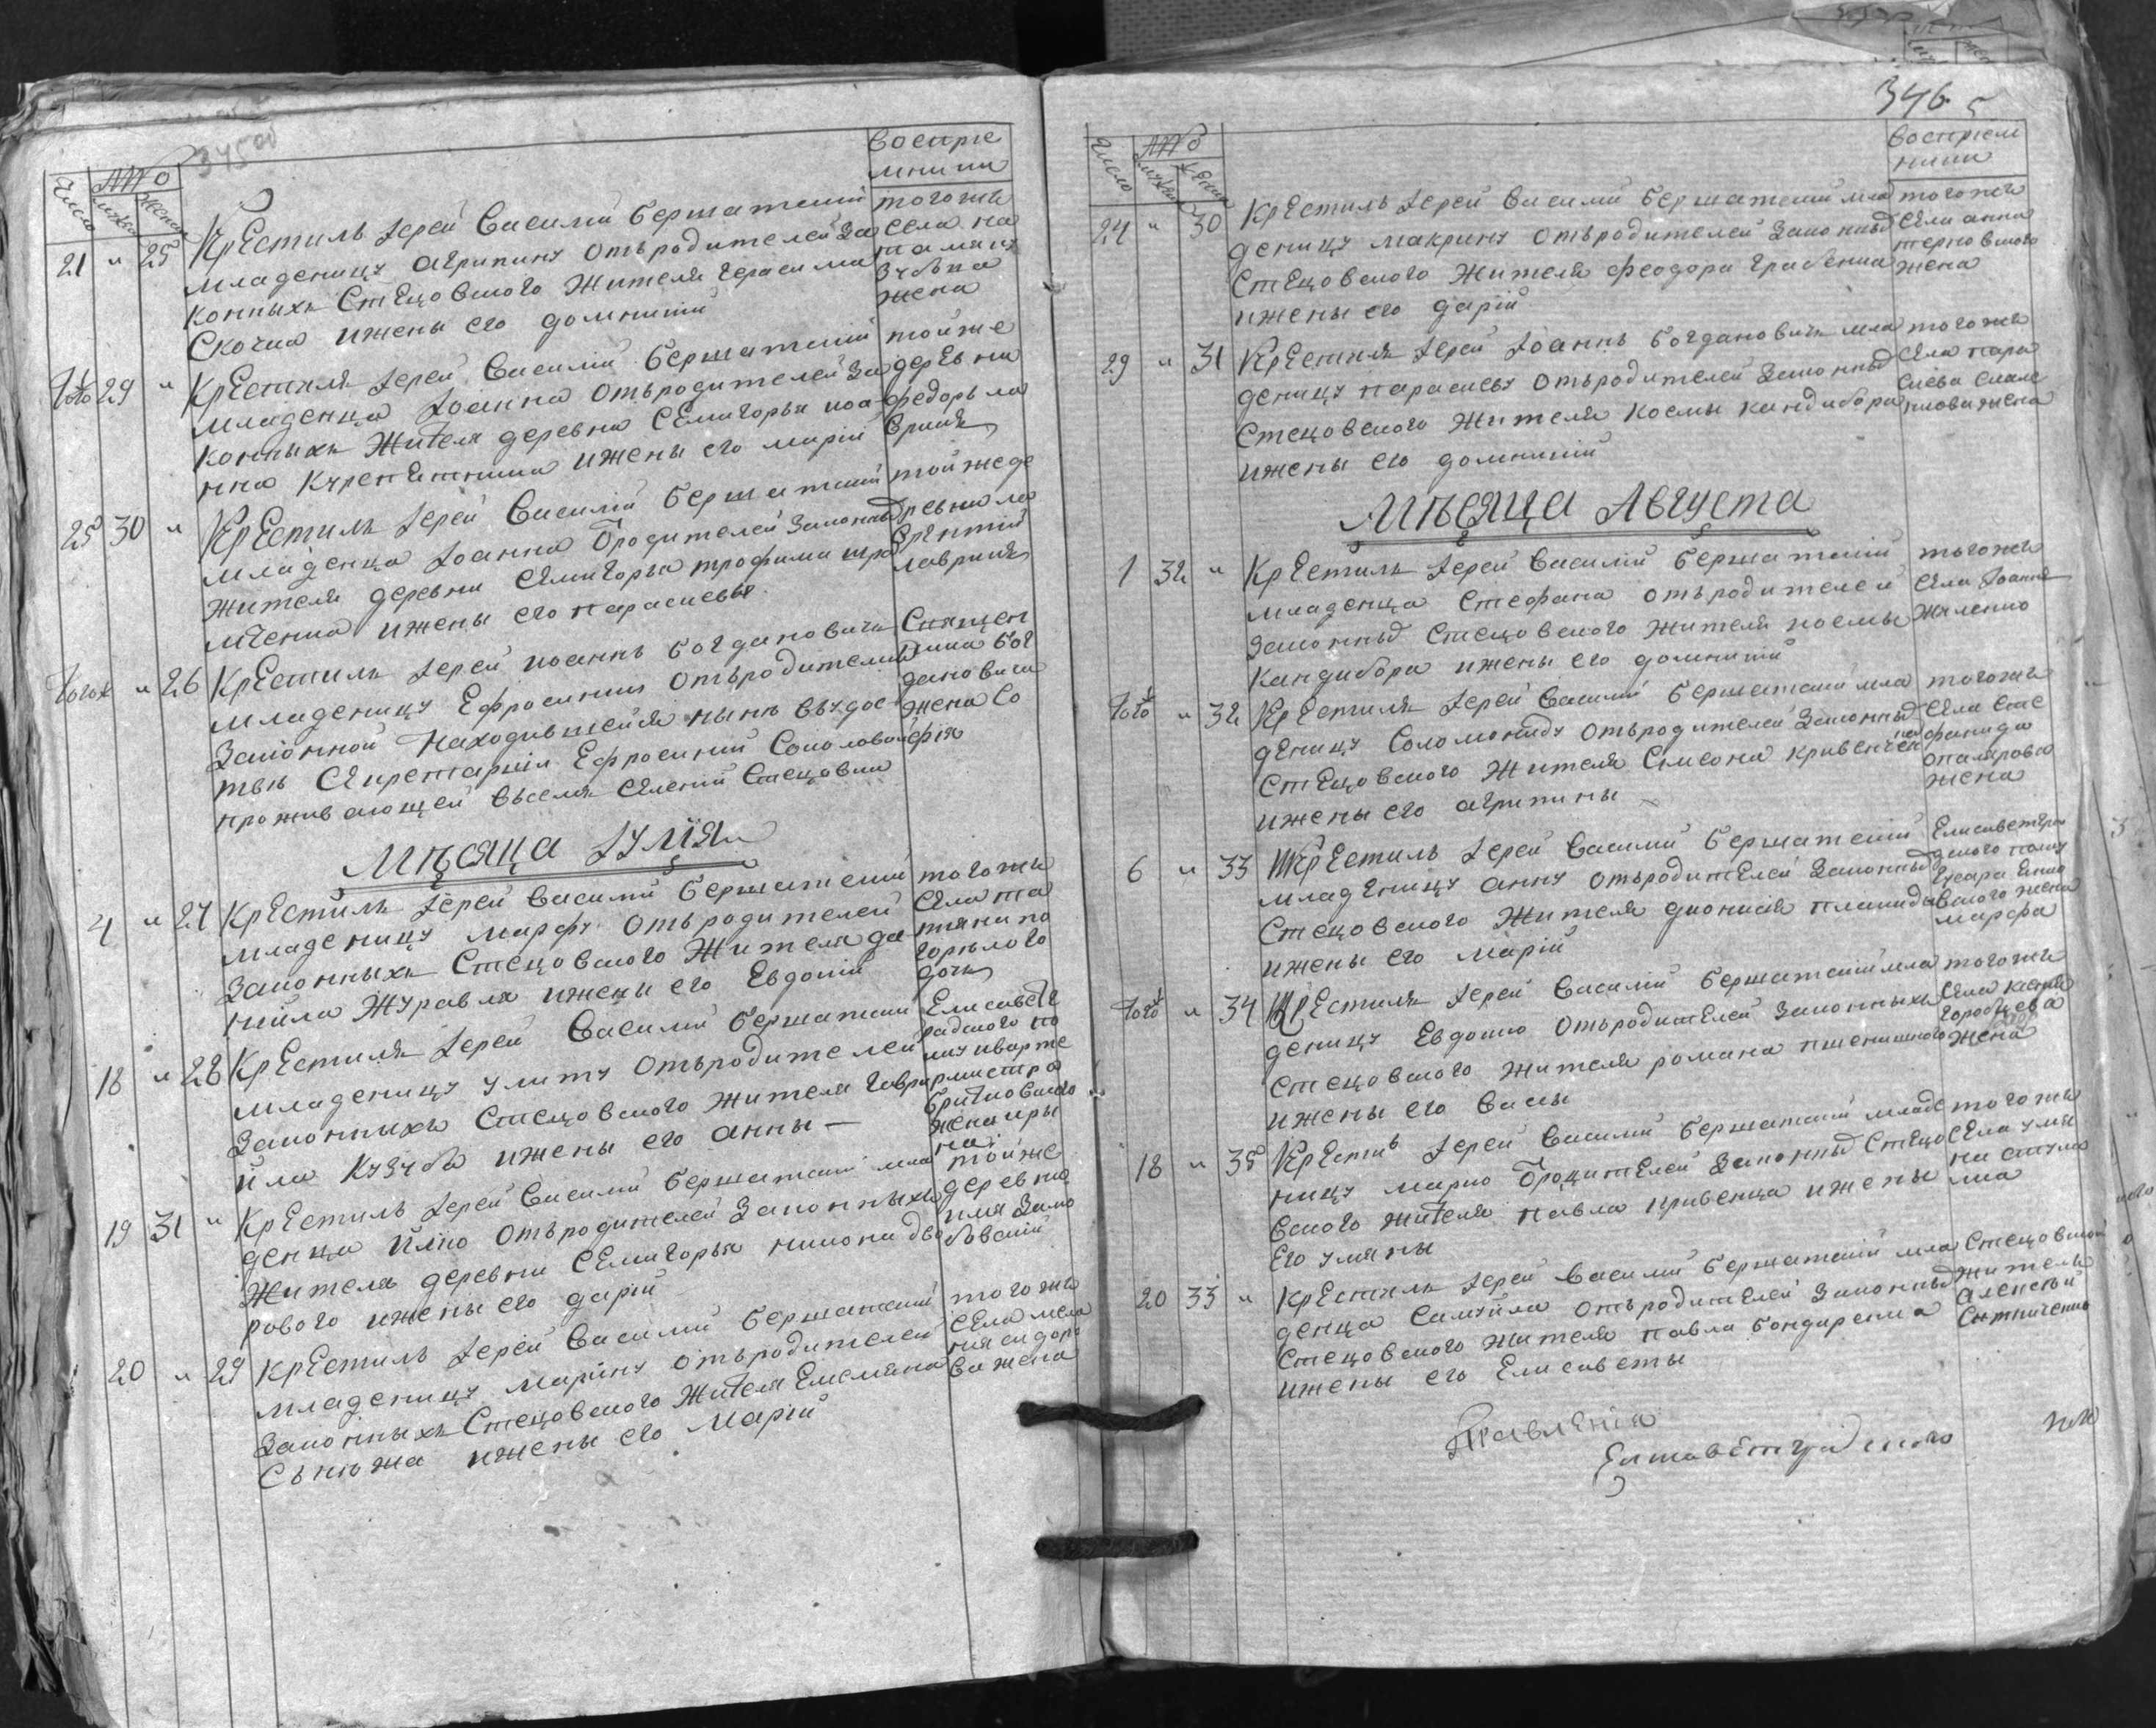 345 об
Число
№
мужес
женск
восприе
мники
21 " 25
Крестилъ Іерей Василій Бершатскій
младеницу Агрипину отъ родителей за
конныхъ Стецовского Жителя Герасима
Скочка и жены его домникіи
того же
села на
талия
Зубъка
жена
тогож 29 "
Крестилъ Іерей Василій Бершатскій
младенца Іоанна отъ родителей за
конныхъ Жителя деревни Семигорья иоа
нна и жены его маріи
той же
деревни
федоръ ла
вриня
25 30 "
Крестилъ Іерей Василій Бершатскій
младенца Іоанна ѿ родителей законныхъ
жителя деревни Семигорья трофима
и жены его параскевы
той же де
ревни ла
врентій
лавриня
тогож " 26
Крестилъ Іерей иоаннъ Богдановичъ
младеницу Ефросинию отъ родителей
законной находившейся нынѣ въ удос
твѣ Секретарши Ефросиніи Соколовой
проживающей въ селѣ Селеніи Стецовки
Священ
ника Бог
дановича
жена Со
фія
Мѣсяца Іулія
4 " 27
Крестилъ Іерей Василій Бершатскій
младеницу Марфу отъ родителей
законныхъ Стецовского Жителя да
нійла Журавля и жены его Евдокіи
того же
села та
тияна по
горѣлого
дочь
18 " 28
Крестилъ Іерей Василій Бершатскій
младеницу Улиту отъ родителей
законныхъ Стецовского жителя гаври
ила Кузуба и жены его анны
Елисавет
радского по
лку кварте
рмистра
жена ири
на
19 31 "
Крестилъ Іерей Василій Бершатскій мла
денца Илию отъ родителей законныхъ
жителя деревни Семигорья никона дво
рового и жены его даріи
той же
деревни
илия Зало
бовскій
20 " 29
Крестилъ Іерей Василій Бершатскій
младеницу Марину отъ родителей
законныхъ Стецовского Жителя Емелияна
и жены его Маріи
того же
села мела
ния сидоро
ва жена
346
Число
№
мужес
женск
восприем
ники
24 " 30
Крестилъ Іерей Василій Бершатскій мла
деницу макрину отъ родителей законныхъ
Стецовского Жителя феодора Грабенка
и жены его даріи
того же
села анна
терновского
жена
29 " 31
Крестилъ Іерей Іоаннъ Богдановичъ мла
деницу параскеву отъ родителей законныхъ
Стецовского Жителя космы кандибора
и жены его домникіи
того же
села пара
скева
жена
Мѣсяца Августа
1 32 "
Крестилъ Іерей Василій Бершатскій
младенца Стефана отъ родителей
законныхъ Стецовского жителя космы
Кандибора и жены его домникіи
того же
села Іоаннъ
Жиленко
тогож " 32
Крестилъ Іерей Василій Бершатскій мла
деницу Соломониду отъ родителей законныхъ
Стецовского Жителя Симеона кривенченка
и жены его агрипины
того же
села Сте
фанида
жена
6 " 33
Крестилъ Іерей Василій Бершатскій
младеницу анну отъ родителей законныхъ
Стецовского Жителя дионисія
и жены его Маріи
Елисаветгра
дского полку
Гусара
жена
марфа
тогож " 34
Крестилъ Іерей Василій Бершатскій мла
деницу Евдокию отъ родителей законныхъ
Стецовского жителя романа пшеничного
и жены его Васы
того же
села
жена
18 " 35
Крестилъ Іерей Василій Бершатскій младе
ницу марию ѿ родителей законныхъ Стецо
вского жителя павла кривенца и жены
его улияны
того же
села улия
на
20 33 "
Крестилъ Іерей Василій Бершатскій мла
денца Самуйла отъ родителей законныхъ
Стецовского Жителя павла бондаренка
и жены его Елисаветы
Стецовской
житель
алексѣй
Ситниченко
Правленія
Елисаветградского